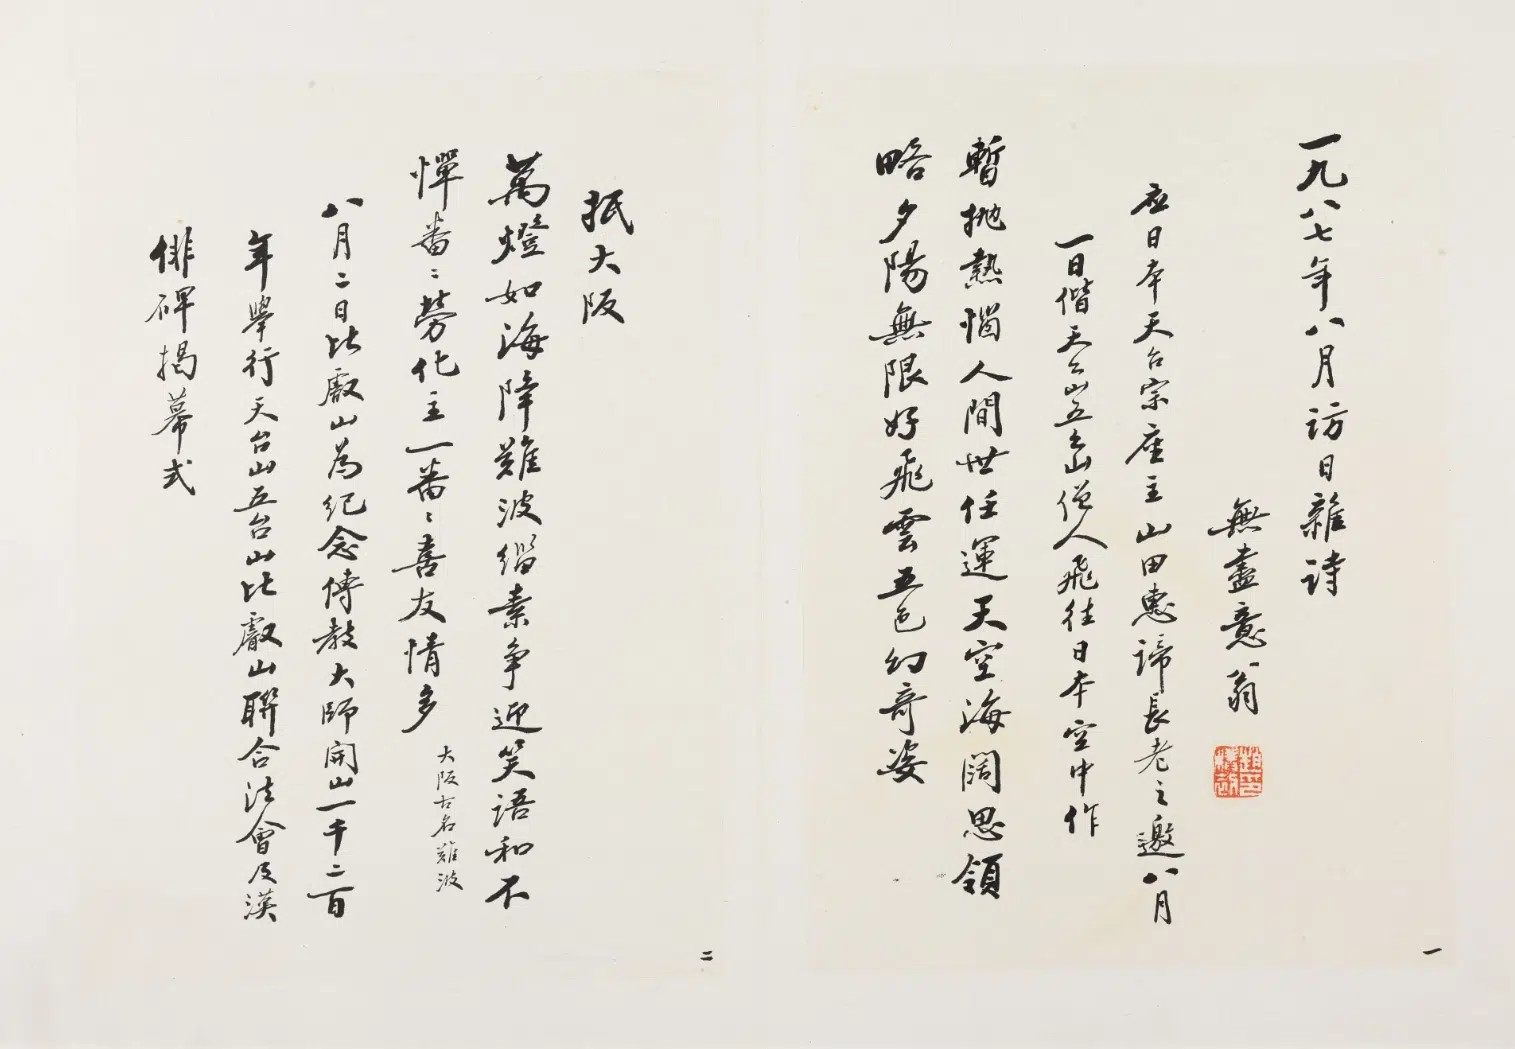 一九八七年八月訪日雜詩
無盡意翁
趙樸初印
应日本天台宗座主山田惠諦長老之邀八月
一日偕天台山五台山僧人飛往日本空中作
暫抛熱惱人間世任運天空海闊思領
略夕陽無限好飛雲五色幻奇姿
一
抵大阪
萬燈如海降難波緇素争迎笑語和不
憚番〻勞化主一番〻喜友情多
大阪古名難波
八月二日比叡山為紀念傳教大師開山一千二百
年舉行天台山五台山比叡山聯合法會及漢
俳碑揭幕式
二